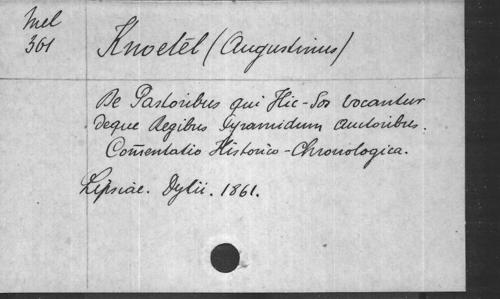 Mel
361
Knoetel (Augustinus)
De Pastoribus qui Hic-Sos vocantur
deque Regibus Pyramidum auctoribus.
Com̅entatio Historico-Chronologica.
Lipsiae. Dykii. 1861.